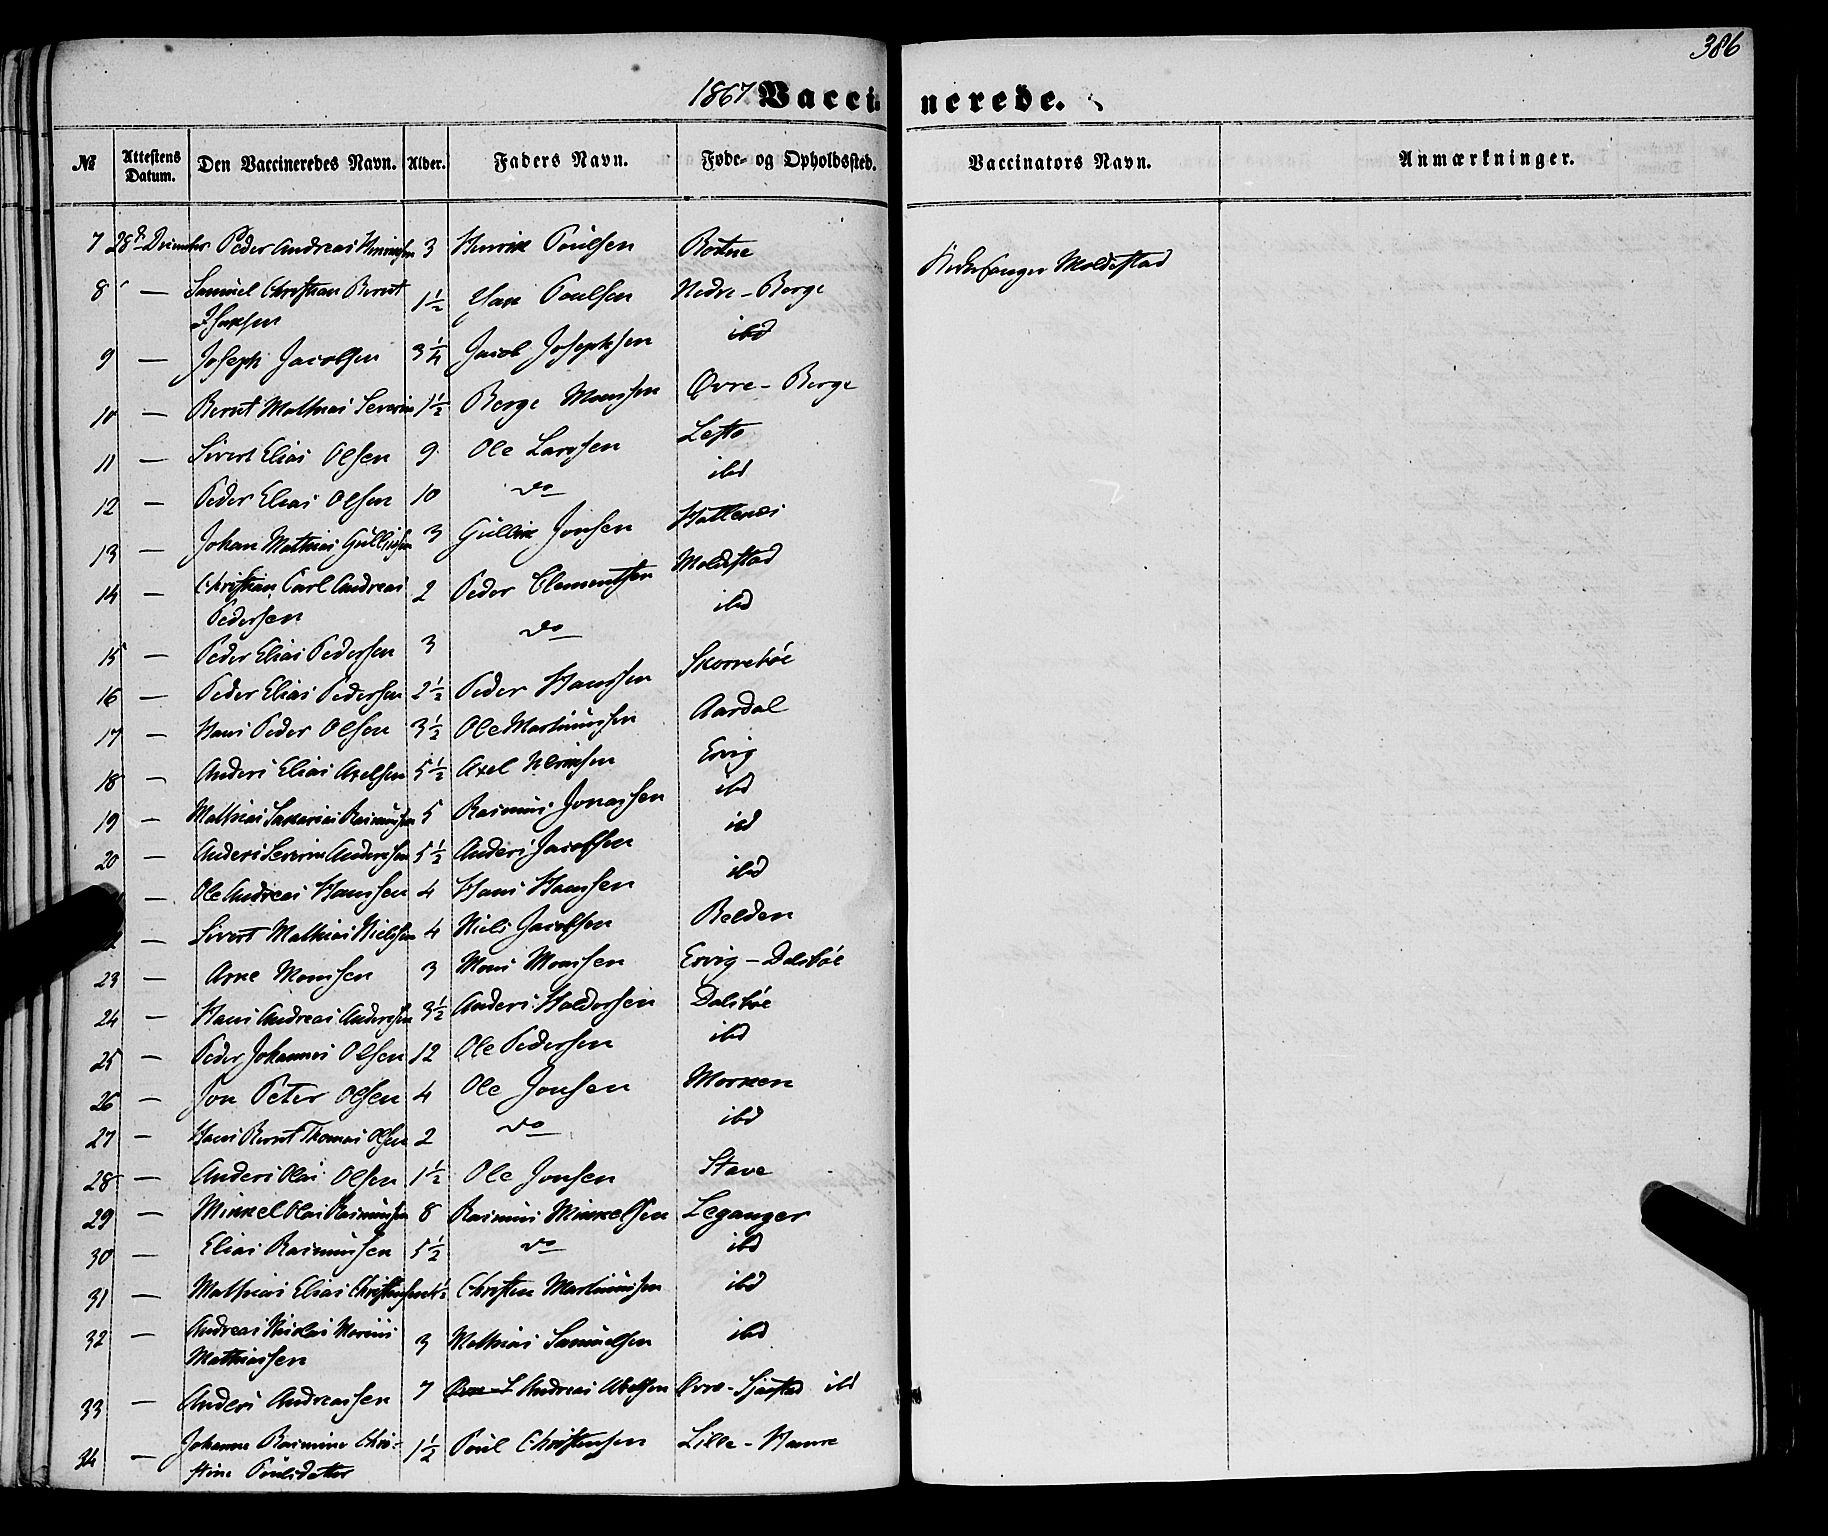 386
1867 Vaccinerede.
№ Attestens Datum. Den Vaccineredes Navn. Alder. Faders Navn. Føde- og Opholdssted. Vaccinators Navn. Anmærkninger.
7 28de December Peder Andreas Henriksen 3 Henrik Poulsen Botne Kirkesanger Moldestad
8 — Samuel Christian Bernt 1½ Isak Poulsen Nedre-Berge
Isaksen
9 — Joseph Jacobsen 3¼ Jacob Josephsen ibd
10 — Bernt Mathias Severin 1½ Berge Monssen Øvre-Berge
11 — Sivert Elias Olsen 9 Ole Larssen Lesto
12 — Peder Elias Olsen 10 do ibd
13 — Johan Mathias Gulliksen 3 Gullik Jonsen Hattenæs
14 — Christian Carl Andreas 2 Peder Clementsen Moldestad
Pedersen
15 — Peder Elias Pedersen 3 do ibd
16 — Peder Elias Pedersen 2½ Peder Hanssen Skorrebøe
17 — Hans Peder Olsen 3½ Ole Martinussen Aardal
18 — Anders Elias Axelsen 5½ Axel Ulriksen Ervig
19 — Mathias Sakarias Rasmussen 5 Rasmus Jonassen ibd
20 — Anders Severin Anderssen 5½ Anders Jacobsen ibd
— Ole Andreas Hanssen 4 Hans Hanssen ibd
— Sivert Mathias Nielssen 4 Niels Jacobsen Belden
23 — Arne Monssen 3 Mons Monssen Ervig-Dalsbøe
24 — Hans Andreas Anderssen 3½ Anders Haldorsen Dalsbøe
25 — Peder Johannes Olsen 12 Ole Pedersen ibd
26 — Jon Peter Olsen 4 Ole Jonsen Morken
27 — Hans Bernt Thomas Olsen 2 do ibd
28 — Anders Olai Olsen 1½ Ole Jonsen Stave
29 — Mikkel Olai Rasmussen 8 Rasmus Mikkelsen Leganger
30 — Elias Rasmussen 5½ do ibd
31 — Mathias Elias Christensen Christen Martinussen ibd
32 — Andreas Nicolai Marius 3 Mathias Samuelsen ibd
Mathiassen
33 — Anders Andreassen 7 Andreas Abelsen Øvre- ibd
34 — Johanne Rasmine Chri- 1½ Poul Christensen Lille-Hamre
stine Poulsdatter